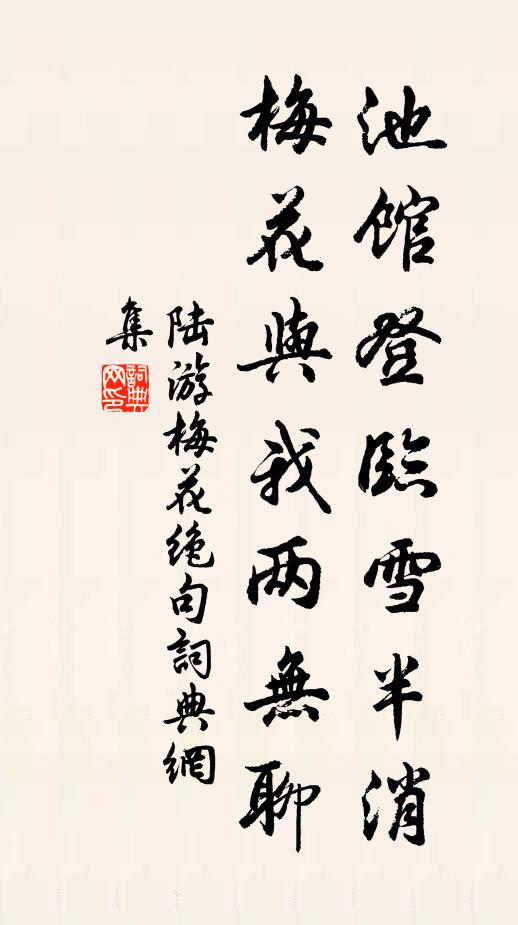 池館登臨雪半消
梅花與我两無聊
陆游梅花绝句詞典網
集
詞典网印